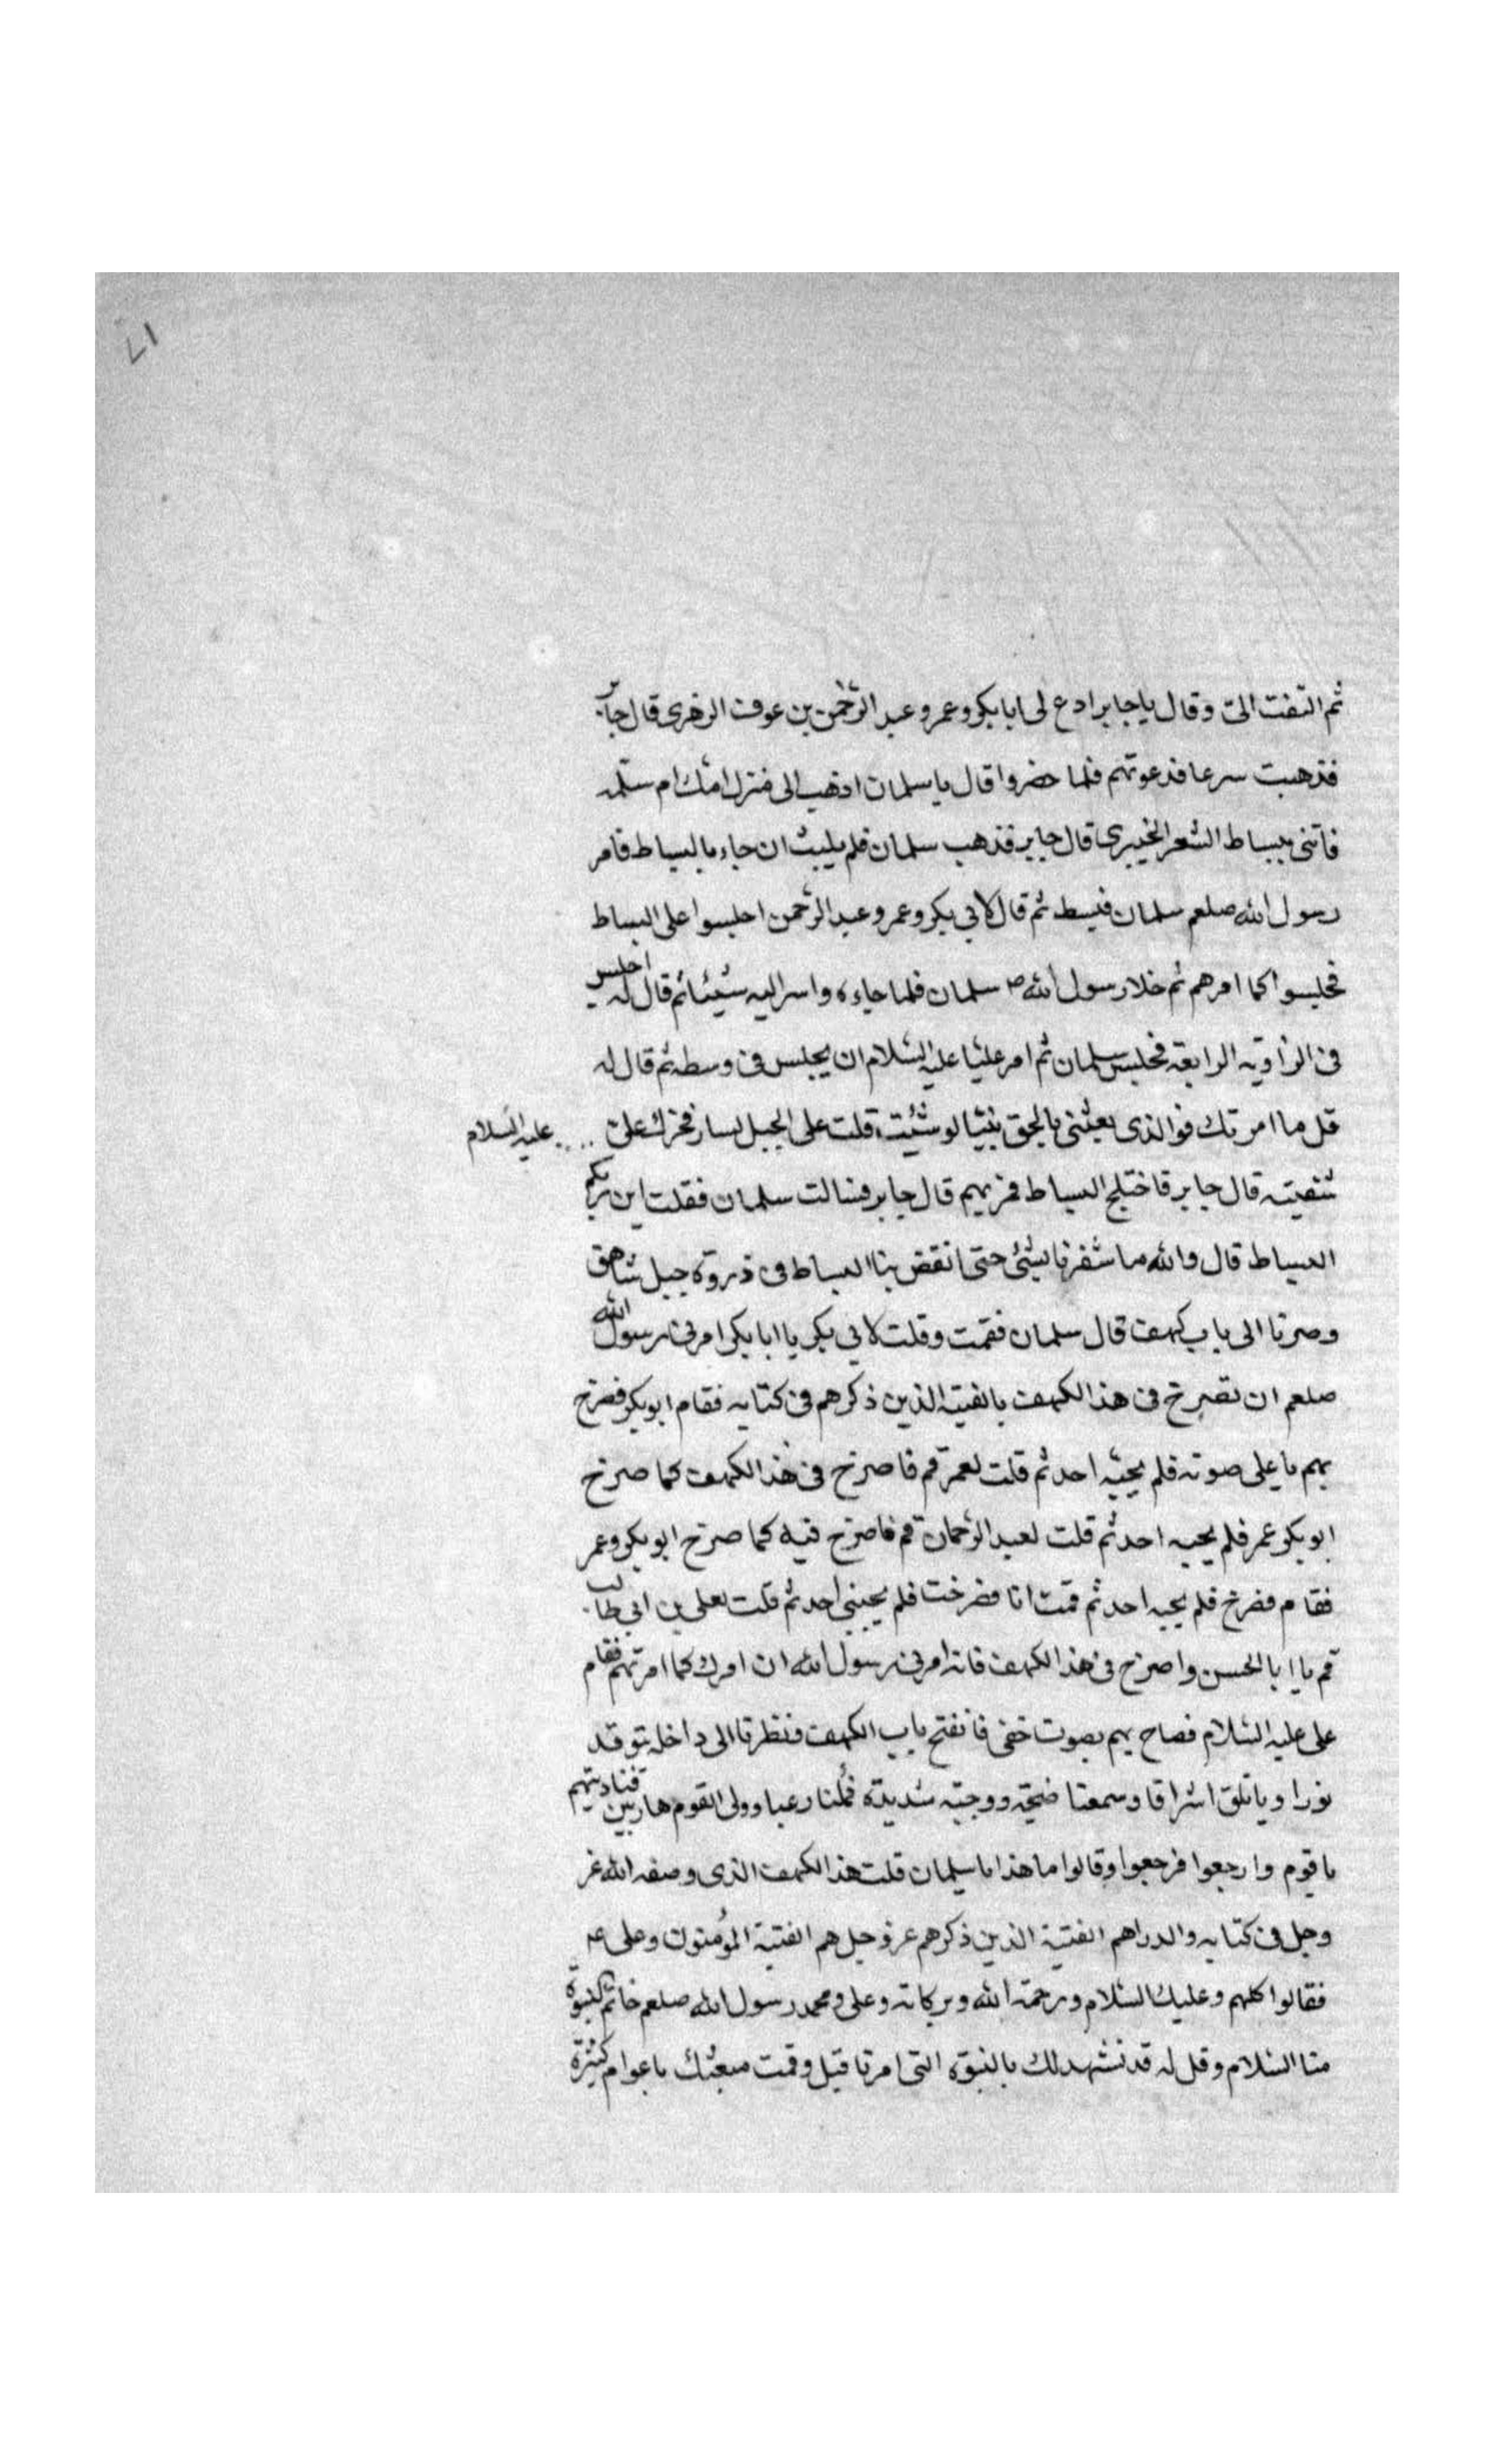 ١٧
ثم التفت الىّ وقال يا جابر ادع لى ابا بكر وعمر وعبد الرّحمن بن عوف الزهرى قال جابر
فذهبت سرعا فدعوتهم فلما حضروا قال يا سلمان اذهب الى منزل امّك ام سلمه
فاتنى ببساط الشعر الخيبرى قال جابر فذهب سلمان فلم يلبث ان جاء بالبساط فامر
رسول الله صلعم سلمان فبسط ثم قال لابي بكر وعمر وعبد الرّحمن اجلسوا على البساط
فجلسوا كما امرهم ثم خلا رسول الله ص سلمان فلما جاءه واسر اليه شيئا ثم قال له اجلس
فى الزاويه الرابعة فجلس سلمان ثم امر عليّا عليه السّلام ان يجلس فى وسطه ثم قال له
قل ما امرتك فوالذى بعثنى بالحق نبيّا لو شئت قلت على الجبل لسار فحرّك علىّ عليه السلام
شفتيه قال جابر فاختلج البساط فمر بهم قال جابر فسالت سلمان فقلت اين مربكم
البساط قال والله ما شعرنا بشئ حتى انقض بنا البساط فى ذروة جبل شاهق
وصرنا الى باب كهف قال سلمان فقمت وقلت لابي بكر يا ابا بكر امرنى رسول الله
صلعم ان تصرخ فى هذا الكهف بالفتية الذين ذكرهم فى كتابه فقام ابو بكر فصرخ
بهم باعلى صوته فلم يجبه احد ثم قلت لعمر قم فاصرخ فى هذا الكهف كما صرخ
ابو بكر عمر فلم يجبه احد ثم قلت لعبد الرّحمان قم فاصرخ فيه كما صرخ ابو بكر وعمر
فقام فصرخ فلم يجبه احد ثم قمت انا فصرخت فلم يجبنى احد ثم قلت لعلى بن ابي طالب
قم يا ابا الحسن واصرخ فى هذا الكهف فانه امرنى رسول الله ان امرك كما امرتهم فقام
على عليه السّلام فصاح بهم بصوت خفى فانفتح باب الكهف فنظرنا الى داخله يتوقد
نورا وياتلق اشراقا وسمعنا ضجّة ووجبة شديدة فملئنا رعبا وولى القوم هاربين فناديتهم
يا قوم وارجعوا فرجعوا وقالوا ما هذا يا سلمان قلت هذا الكهف الذى وصفه الله عز
وجل فى كتابه والدراهم الفتية الذين ذكرهم عز وجل هم الفتية المؤمنون وعلى ع
فقالوا كلهم وعليك السّلام ورحمة الله وبركاته وعلى محمد رسول الله صلعم خاتم النبوّة
منا السّلام وقل له قد نشهد لك بالنبوّة التى امرنا قبل وقمت مبعثك باعوام كثيرة